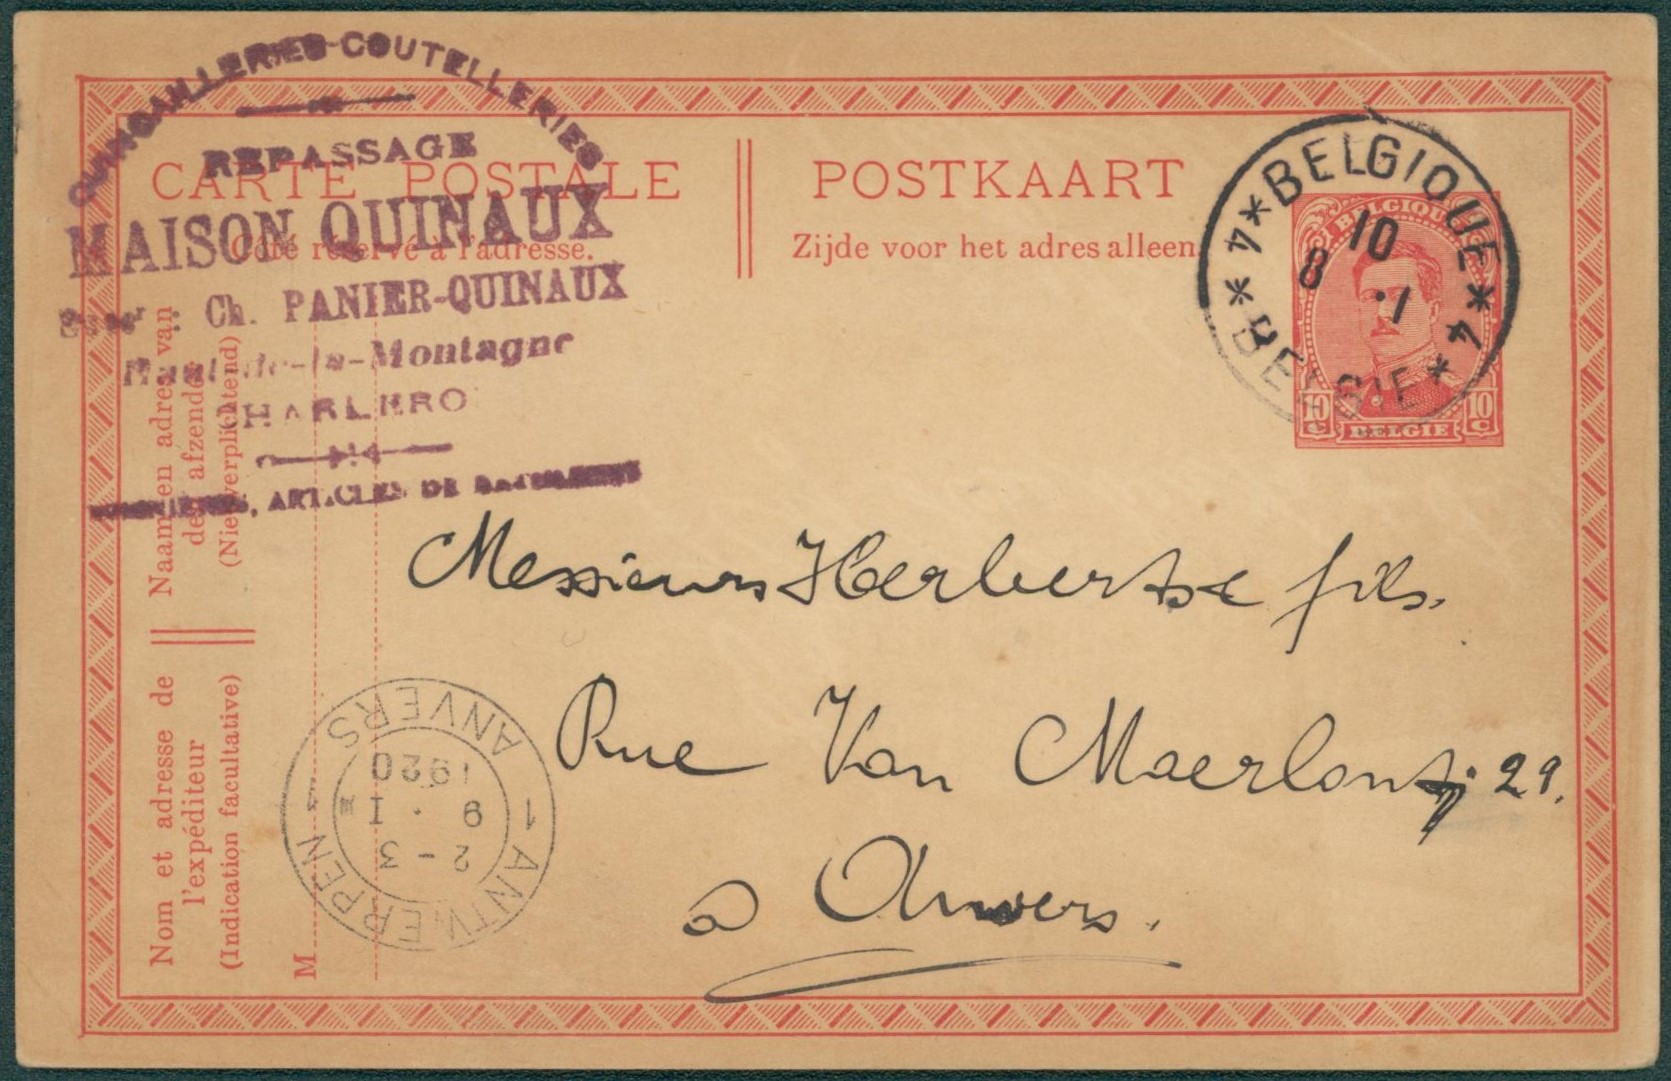 QUINCAILLERIES-COUTELLERIES
REPASSAGE
MAISON QUINAUX
Ch. PANIER-QUINAUX
de-la-Montagne
CHARLERO
ARTICLES DE
CARTE POSTALE
Côté réservé à l'adresse.
POSTKAART
Zijde voor het adres alleen.
*BELGIQUE*
4 4
10
8 .1
*BELGIE*
BELGIQUE
10 c 10 c
BELGIE
Naam en adres van
den afzender
(Niet verplichtend)
Nom et adresse de
l'expéditeur
(Indication facultative)
M
1 ANTWERPEN 1
ANVERS
2-3
9 . I
1920
Messieurs Herberts & fils.
Rue Van Maerlant, 29.
à Anvers.